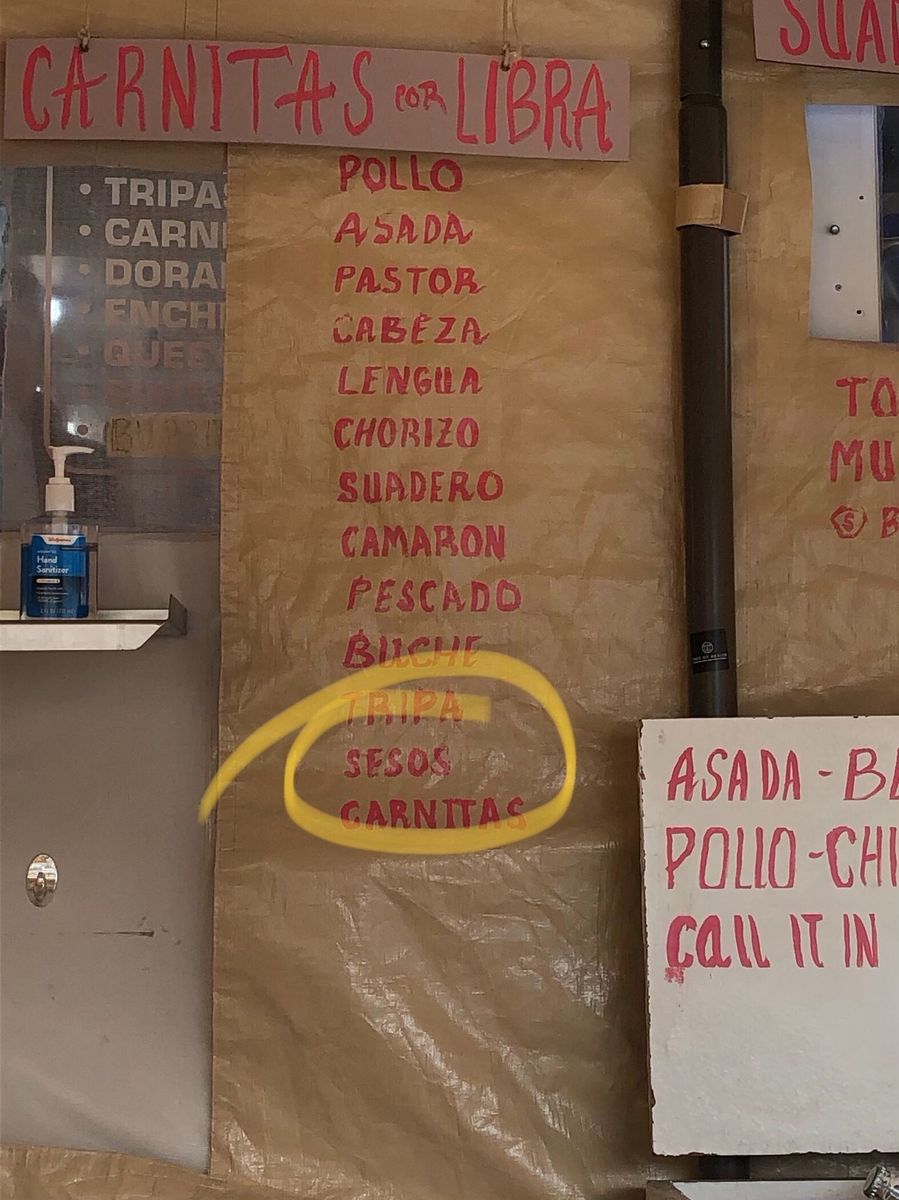 CARNITAS POR LIBRA
POLLO
ASADA
PASTOR
CABEZA
LENGUA
CHORIZO
SUADERO
CAMARON
PESCADO
BUCHE
TRIPA
SESOS
CARNITAS
• TRIPAS
• CARNI
• DORA
• ENCHI
• QUES
Walgreens
Hand
Sanitizer
SUA
TO
MU
S B
ASADA - B
POLLO - CHI
CALL IT IN